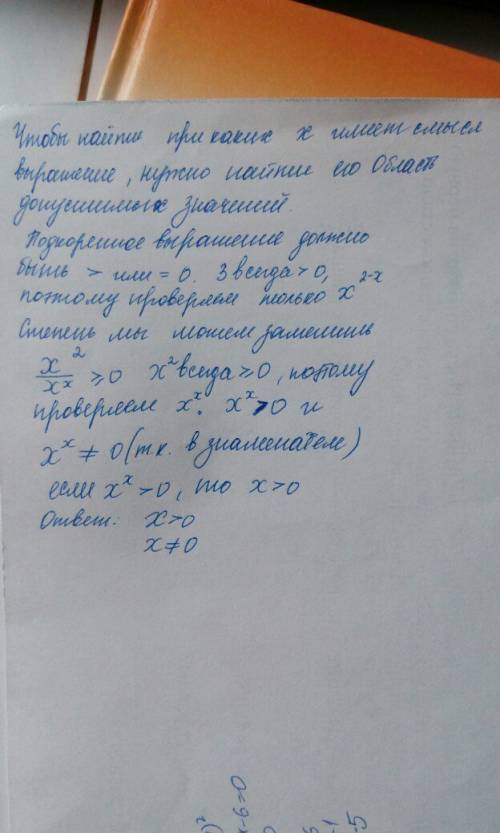 Чтобы найти при каких x имеет смысл
выражение, нужно найти его Област
допустимых значений.
Подкоренное выражение должно
быть > или = 0. 3 всегда > 0,
поэтому проверяем только x^{2-x}
Степень мы можем заменить
x^2/x^x ≥ 0 x^2 всегда ≥ 0, поэтому
проверяем x^x. x^x > 0 и
x^x ≠ 0 (т.к. в знаменателе)
если x^x > 0, то x > 0
Ответ: x > 0
x ≠ 0
-6=0